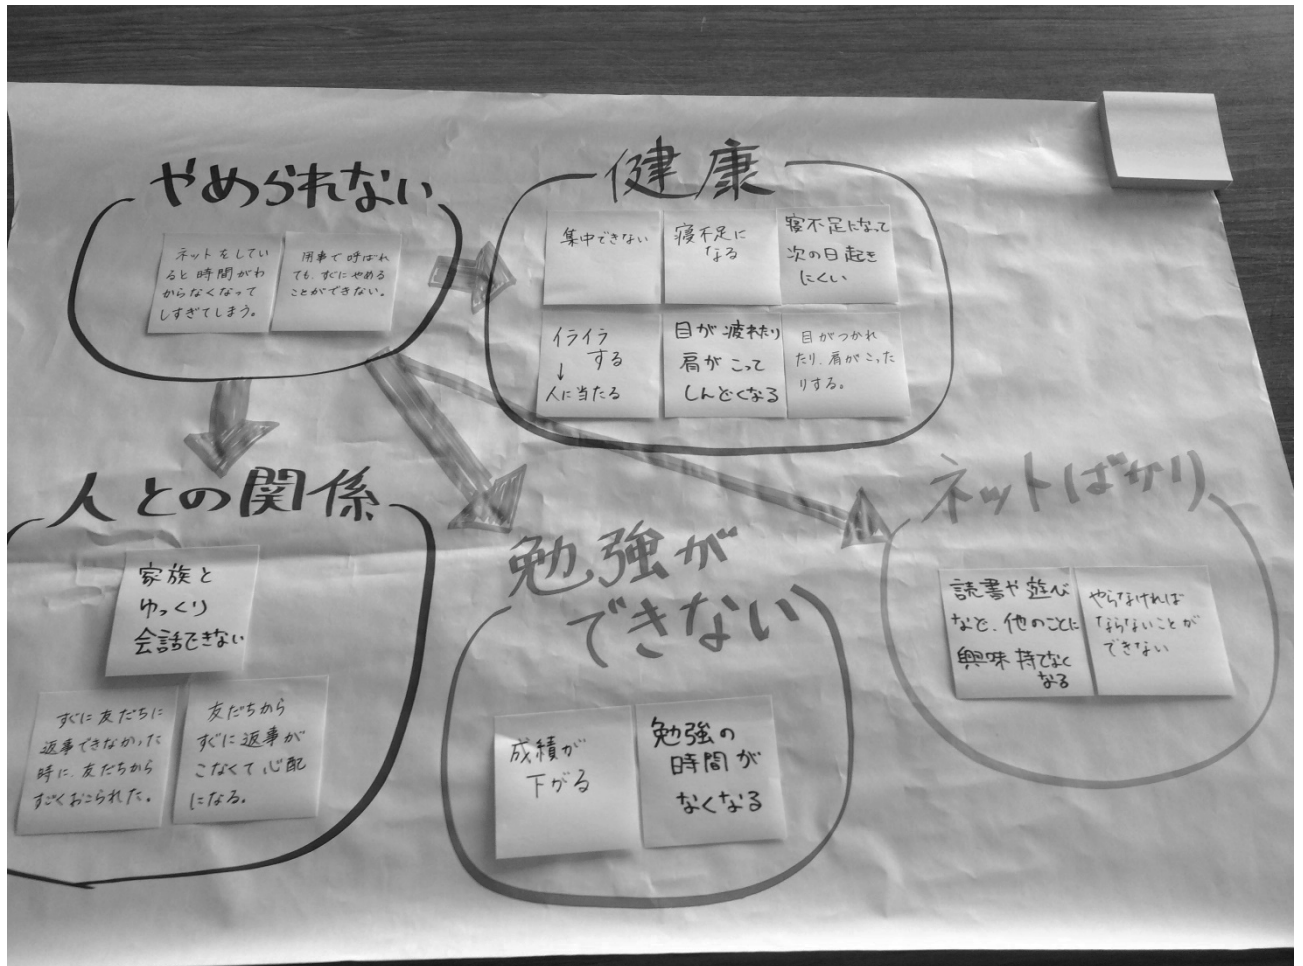 やめられない
ネットをしてい
ると時間がわ
からなくなって
しすぎてしまう。
用事で呼ばれ
ても、すぐにやめる
ことができない。
健康
集中できない
寝不足に
なる
寝不足になって
次の日起き
にくい
イライラ
する
↓
人に当たる
目が疲れたり
肩がこって
しんどくなる
目がつかれ
たり、肩がこった
りする。
人との関係
家族と
ゆっくり
会話できない
すぐに友だちに
返事できなかった
時に、友だちから
すごくおこられた。
友だちから
すぐに返事が
こなくて心配
になる。
勉強が
できない
成績が
下がる
勉強の
時間が
なくなる
ネットばかり
読書や遊び
など、他のことに
興味持てなく
なる
やらなければ
ならないことが
できない